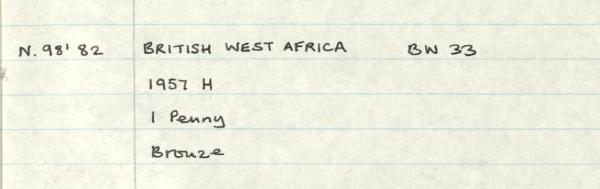 N. 98' 82 BRITISH WEST AFRICA BW 33
1957 H
1 Penny
Bronze